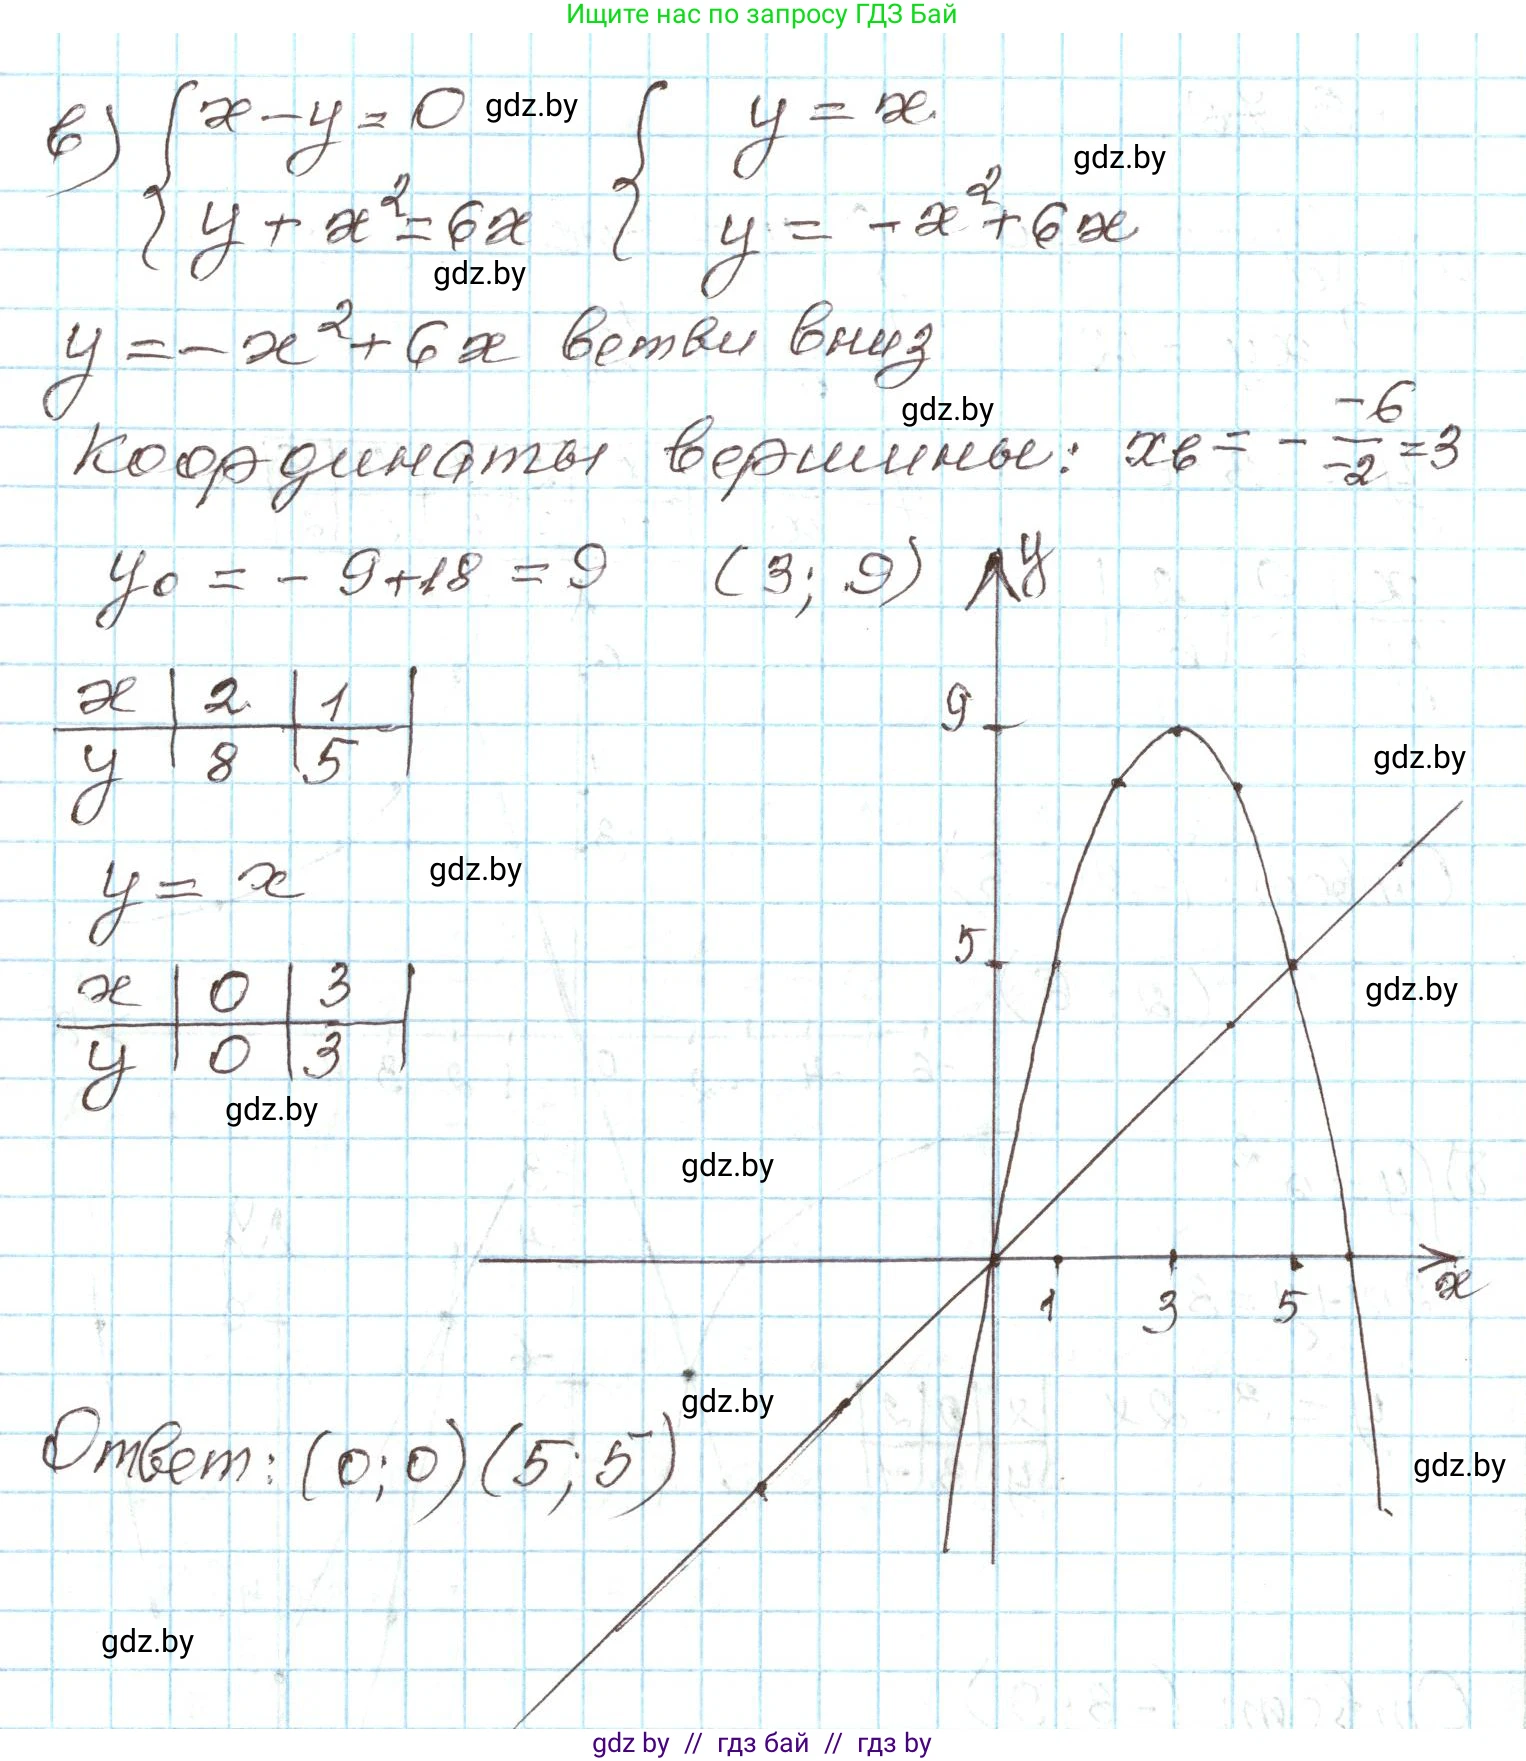 Ищите нас по запросу ГДЗ Бай
в) { x - y = 0 gdz.by { y = x
gdz.by
y + x² = 6x y = -x² + 6x
gdz.by
y = -x² + 6x ветви вниз
gdz.by
Координаты вершины: xв = - -6/-2 = 3
y₀ = -9+18 = 9 (3; 9) y
x | 2 | 1 |
y | 8 | 5 |
9
gdz.by
y = x gdz.by
5
x | 0 | 3 |
y | 0 | 3 |
gdz.by
gdz.by
gdz.by
1 3 5 x
gdz.by
Ответ: (0; 0) (5; 5)
gdz.by
gdz.by
gdz by // гдз бай // гдз by